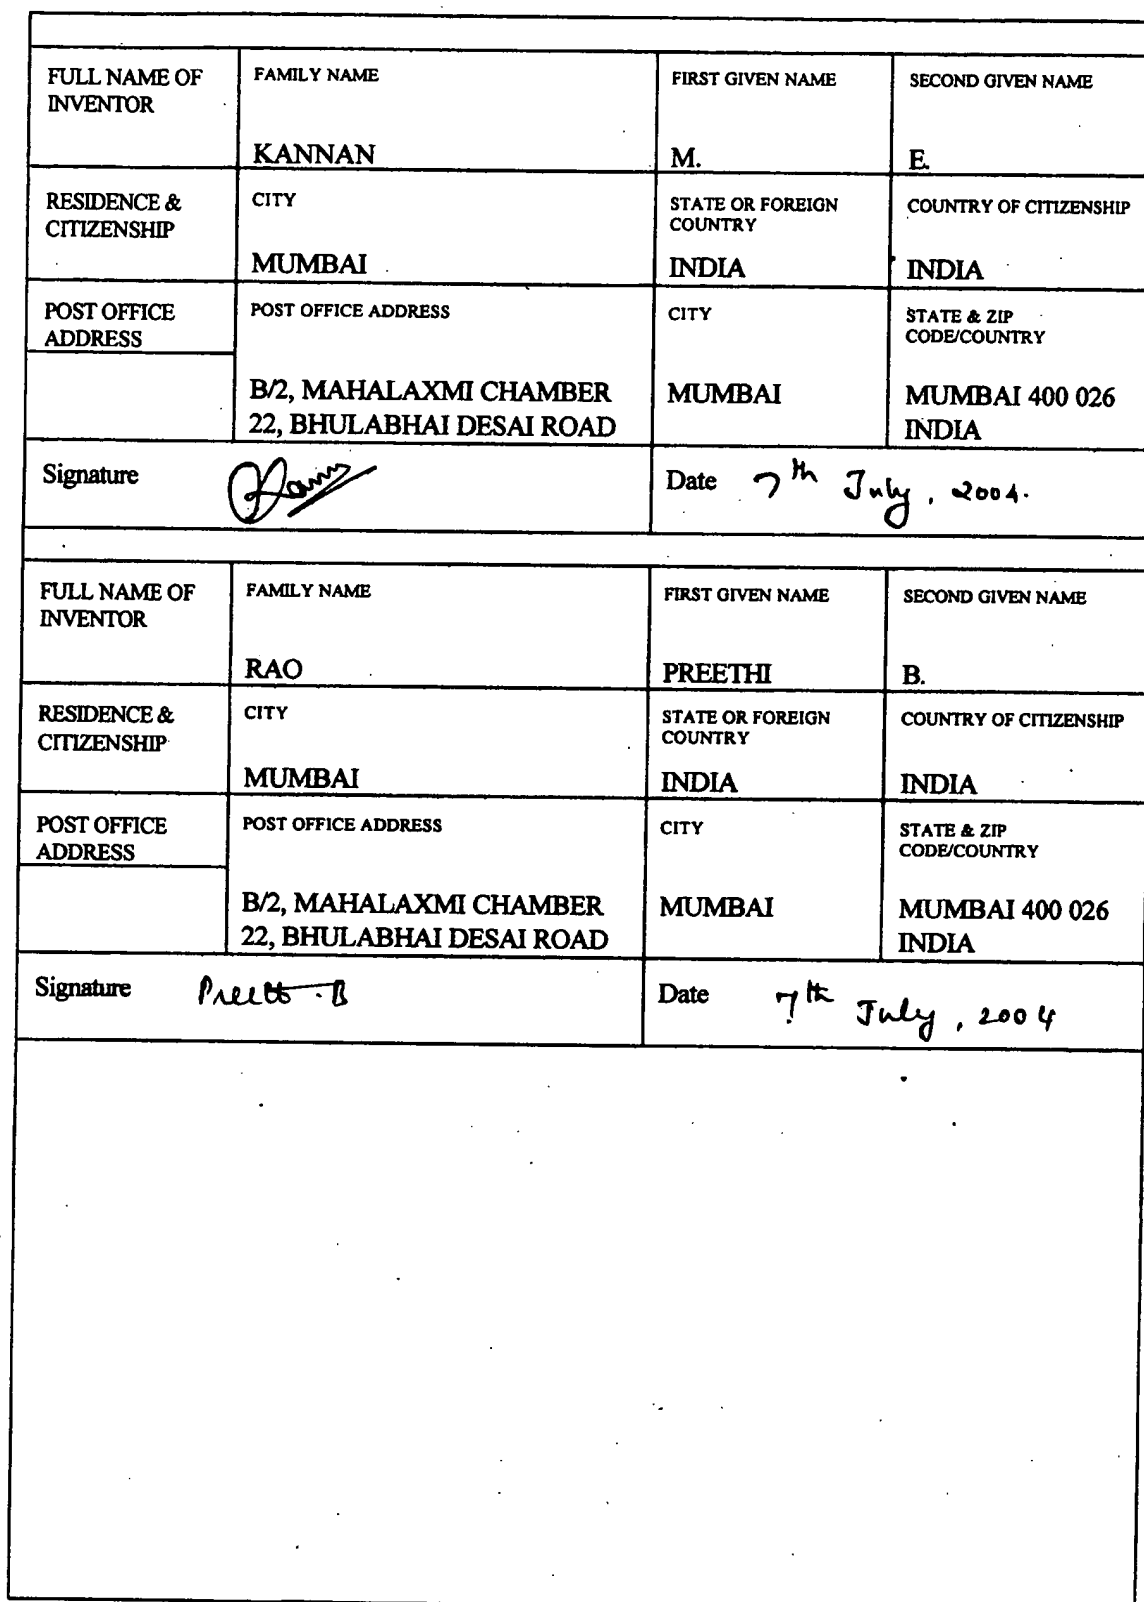 FULL NAME OF INVENTOR
FAMILY NAME
KANNAN
FIRST GIVEN NAME
M.
SECOND GIVEN NAME
E.
RESIDENCE & CITIZENSHIP
CITY
MUMBAI
STATE OR FOREIGN COUNTRY
INDIA
COUNTRY OF CITIZENSHIP
INDIA
POST OFFICE ADDRESS
POST OFFICE ADDRESS
B/2, MAHALAXMI CHAMBER
22, BHULABHAI DESAI ROAD
CITY
MUMBAI
STATE & ZIP CODE/COUNTRY
MUMBAI 400 026
INDIA
Signature
Date 7th July, 2004.
FULL NAME OF INVENTOR
FAMILY NAME
RAO
FIRST GIVEN NAME
PREETHI
SECOND GIVEN NAME
B.
RESIDENCE & CITIZENSHIP
CITY
MUMBAI
STATE OR FOREIGN COUNTRY
INDIA
COUNTRY OF CITIZENSHIP
INDIA
POST OFFICE ADDRESS
POST OFFICE ADDRESS
B/2, MAHALAXMI CHAMBER
22, BHULABHAI DESAI ROAD
CITY
MUMBAI
STATE & ZIP CODE/COUNTRY
MUMBAI 400 026
INDIA
Signature
Date 7th July, 2004